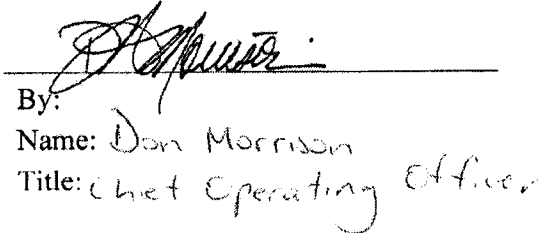 By:
Name: Don Morrison
Title: Chief Operating Officer